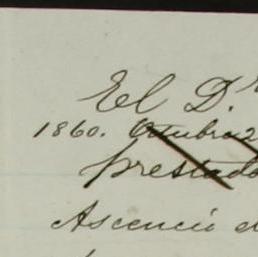 El D.r
1860. Octubre 2
prestado
Ascenció d